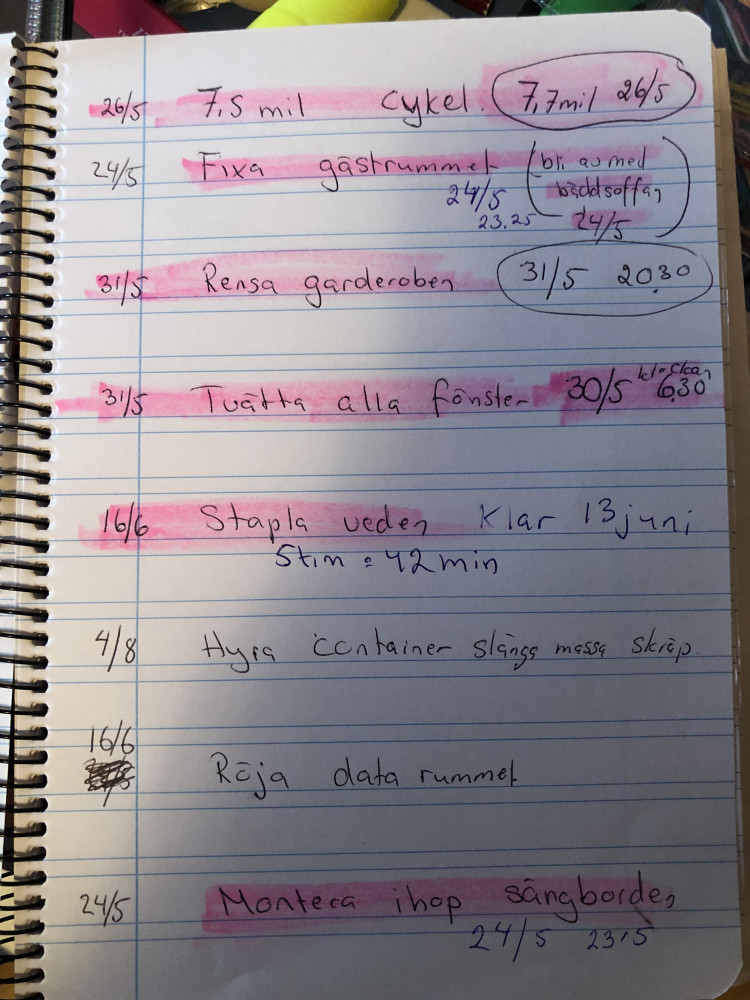 26/5 7,5 mil cykel. 7,7mil 26/5
24/5 Fixa gästrummet (bli av med
24/5 bäddsoffan
23.25 24/5)
31/5 Rensa garderoben 31/5 20.30
31/5 Tvätta alla fönster 30/5 klockan 6.30
16/6 Stapla veden Klar 13 juni
5tim : 42 min
4/8 Hyra container slänga massa skräp.
16/6
Röja data rummet
24/5 Montera ihop sängborden
24/5 23.15